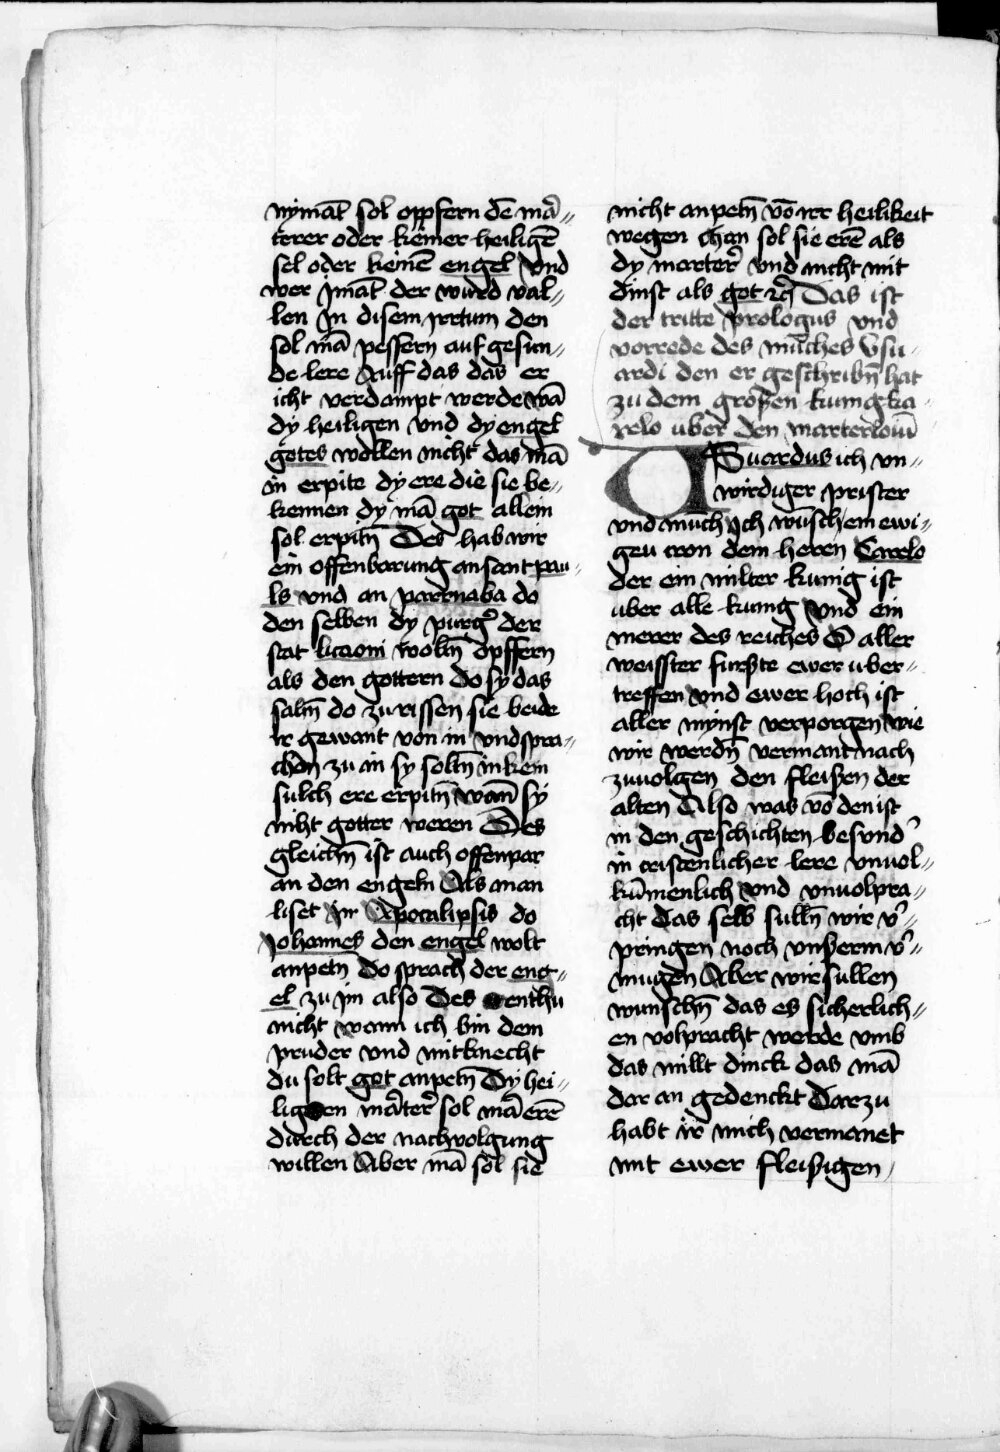 nymāt sol oppfern dē mar̄⸗
terer oder keiner heiligē
sel oder keinē engel Vnd
wer ymāt der wurd val⸗
len In disem yrrtum den
sol mā pessern auf gesun⸗
de lere Auff das das er
icht verdampt werde wā
dy heiligen vnd dy engel
gotes wollen nicht das mā
in erpite dy ere die sie be⸗
kennen dy mā got allein
sol erpitn̄ Des hab wir
ein offenbarung an sant pau⸗
ls vnd an parrnaba do
den selben dy purg̉ der
stat licaoni woltn̄ opffern
als den gottern do sy das
sahn̄ do zurissen sie beide
ir gewant von in vnd spra⸗
chn̄ zu in sy soltn̄ in kein
sulch ere erpitn̄ wan̄ sy
niht gotter weren Des
gleichn̄ ist auch offenpar
an den engeln Als man
liset Jn Apocalipsis do
Johannes den engel wolt
anpetn̄ do sprach der eng⸗
el zu im also Des enthu
nicht wann ich bin dem
pruder vnd mitknecht
du solt got anpetn̄ Dy hei⸗
ligen mārter̉ sol mā erē
durch der nachvolgung
willen Aber mā sol sie
nicht anpetn̄ vō irr heilikeit
wegen man sol sie erē als
dy marter̉ vnd nicht mit
dinst als got ꝛc̄ Das ist
der tritte prologus vnd
vorrede des mūches Vsu⸗
ardi den er geschribn̄ hat
zu dem groſzen kunig ka⸗
relo uber den marterloiū
VSuardus ich vn⸗
wirdiger prister
vnd much Ich wūsch em ewi⸗
gen tron dem heren Carelo
der ein milter kunig ist
uber alle kunig Vnd ein
merer des reiches O aller
weisster furſzte ewer uber⸗
treffen vnd ewer hoch ist
aller mynst verporgen wie
wir werdn̄ vermant nach
zuuolgen den fleiſzen der
alten Also was vō den ist
in den geschichten besund̉
in cristenlicher lere vnuol⸗
kūmenlich vnd vnuolpra⸗
cht Das selb sulln̄ wir v̉⸗
pringen noch vnſzerm v̉⸗
mugen Aber wir sullen
wunschn̄ das es sicherlich⸗
en volpracht werde vmb
das millt dinck das mā
dar an gedenckt Darzu
habt ir mich vermanet
mit ewer fleiſzigen